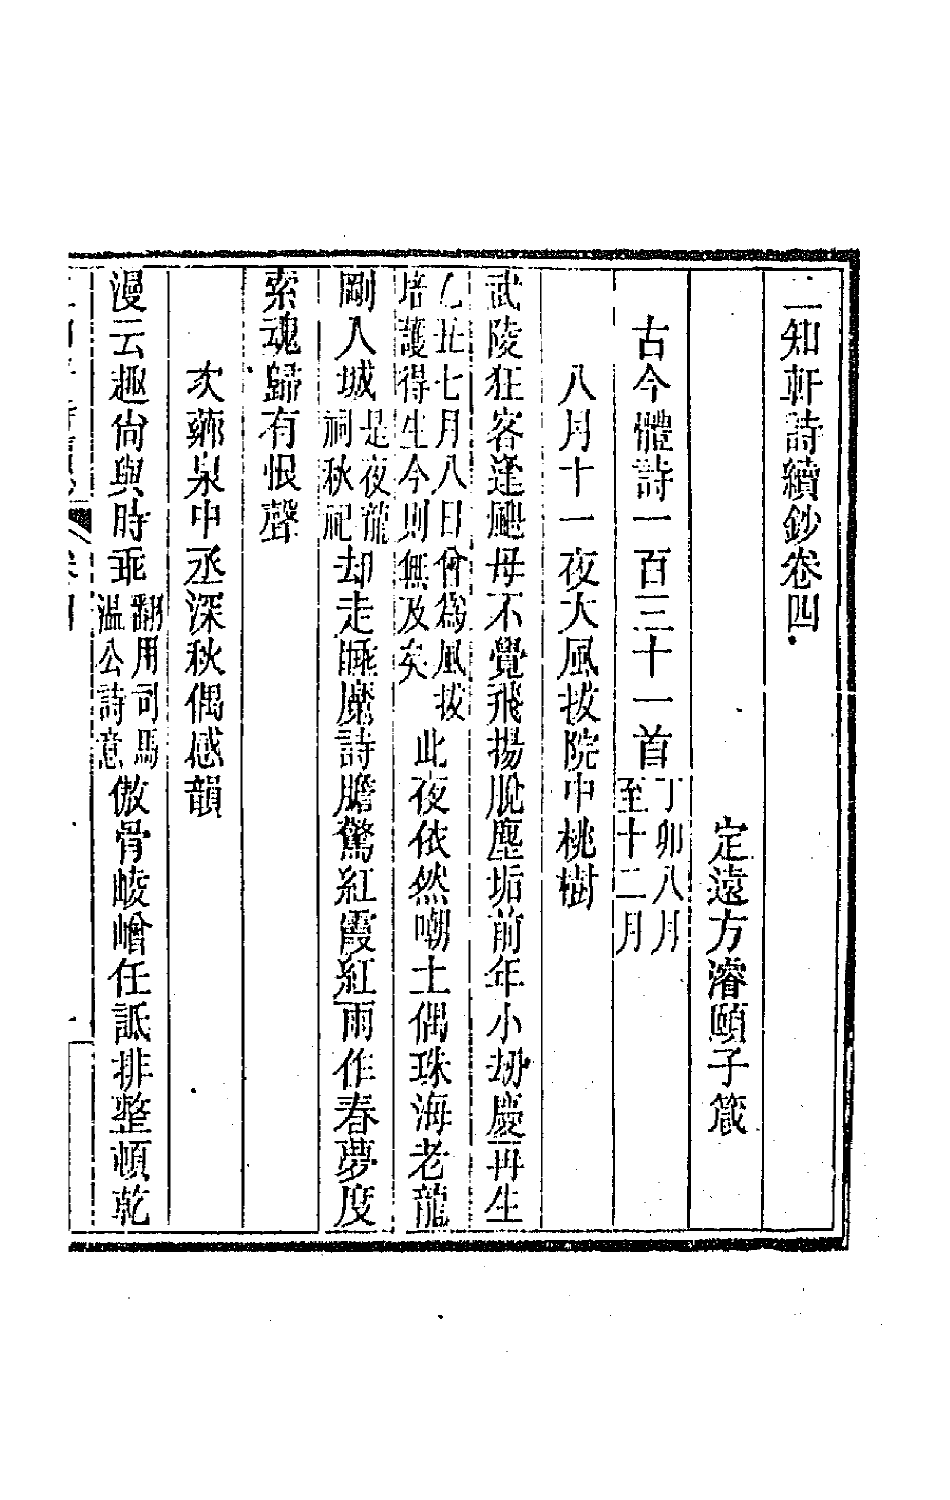 二知軒詩續鈔卷四
定遠方濬頤子箴
古今體詩一百三十一首丁卯八月至十二月
八月十一夜大風拔院中桃樹
武陵狂客逢颶母不覺飛揚脫塵垢前年小刼慶再生
乙丑七月八日曾為風拔培護得生今則無及矣此夜依然嘲土偶珠海老龍
剛入城是夜龍祠秋祀却走睡魔詩膽驚紅霞紅雨作春夢度
索魂歸有恨聲
次薌泉中丞深秋偶感韻
漫云趣尙與時乖翻用司馬溫公詩意傲骨崚嶒任詆排整頓乾